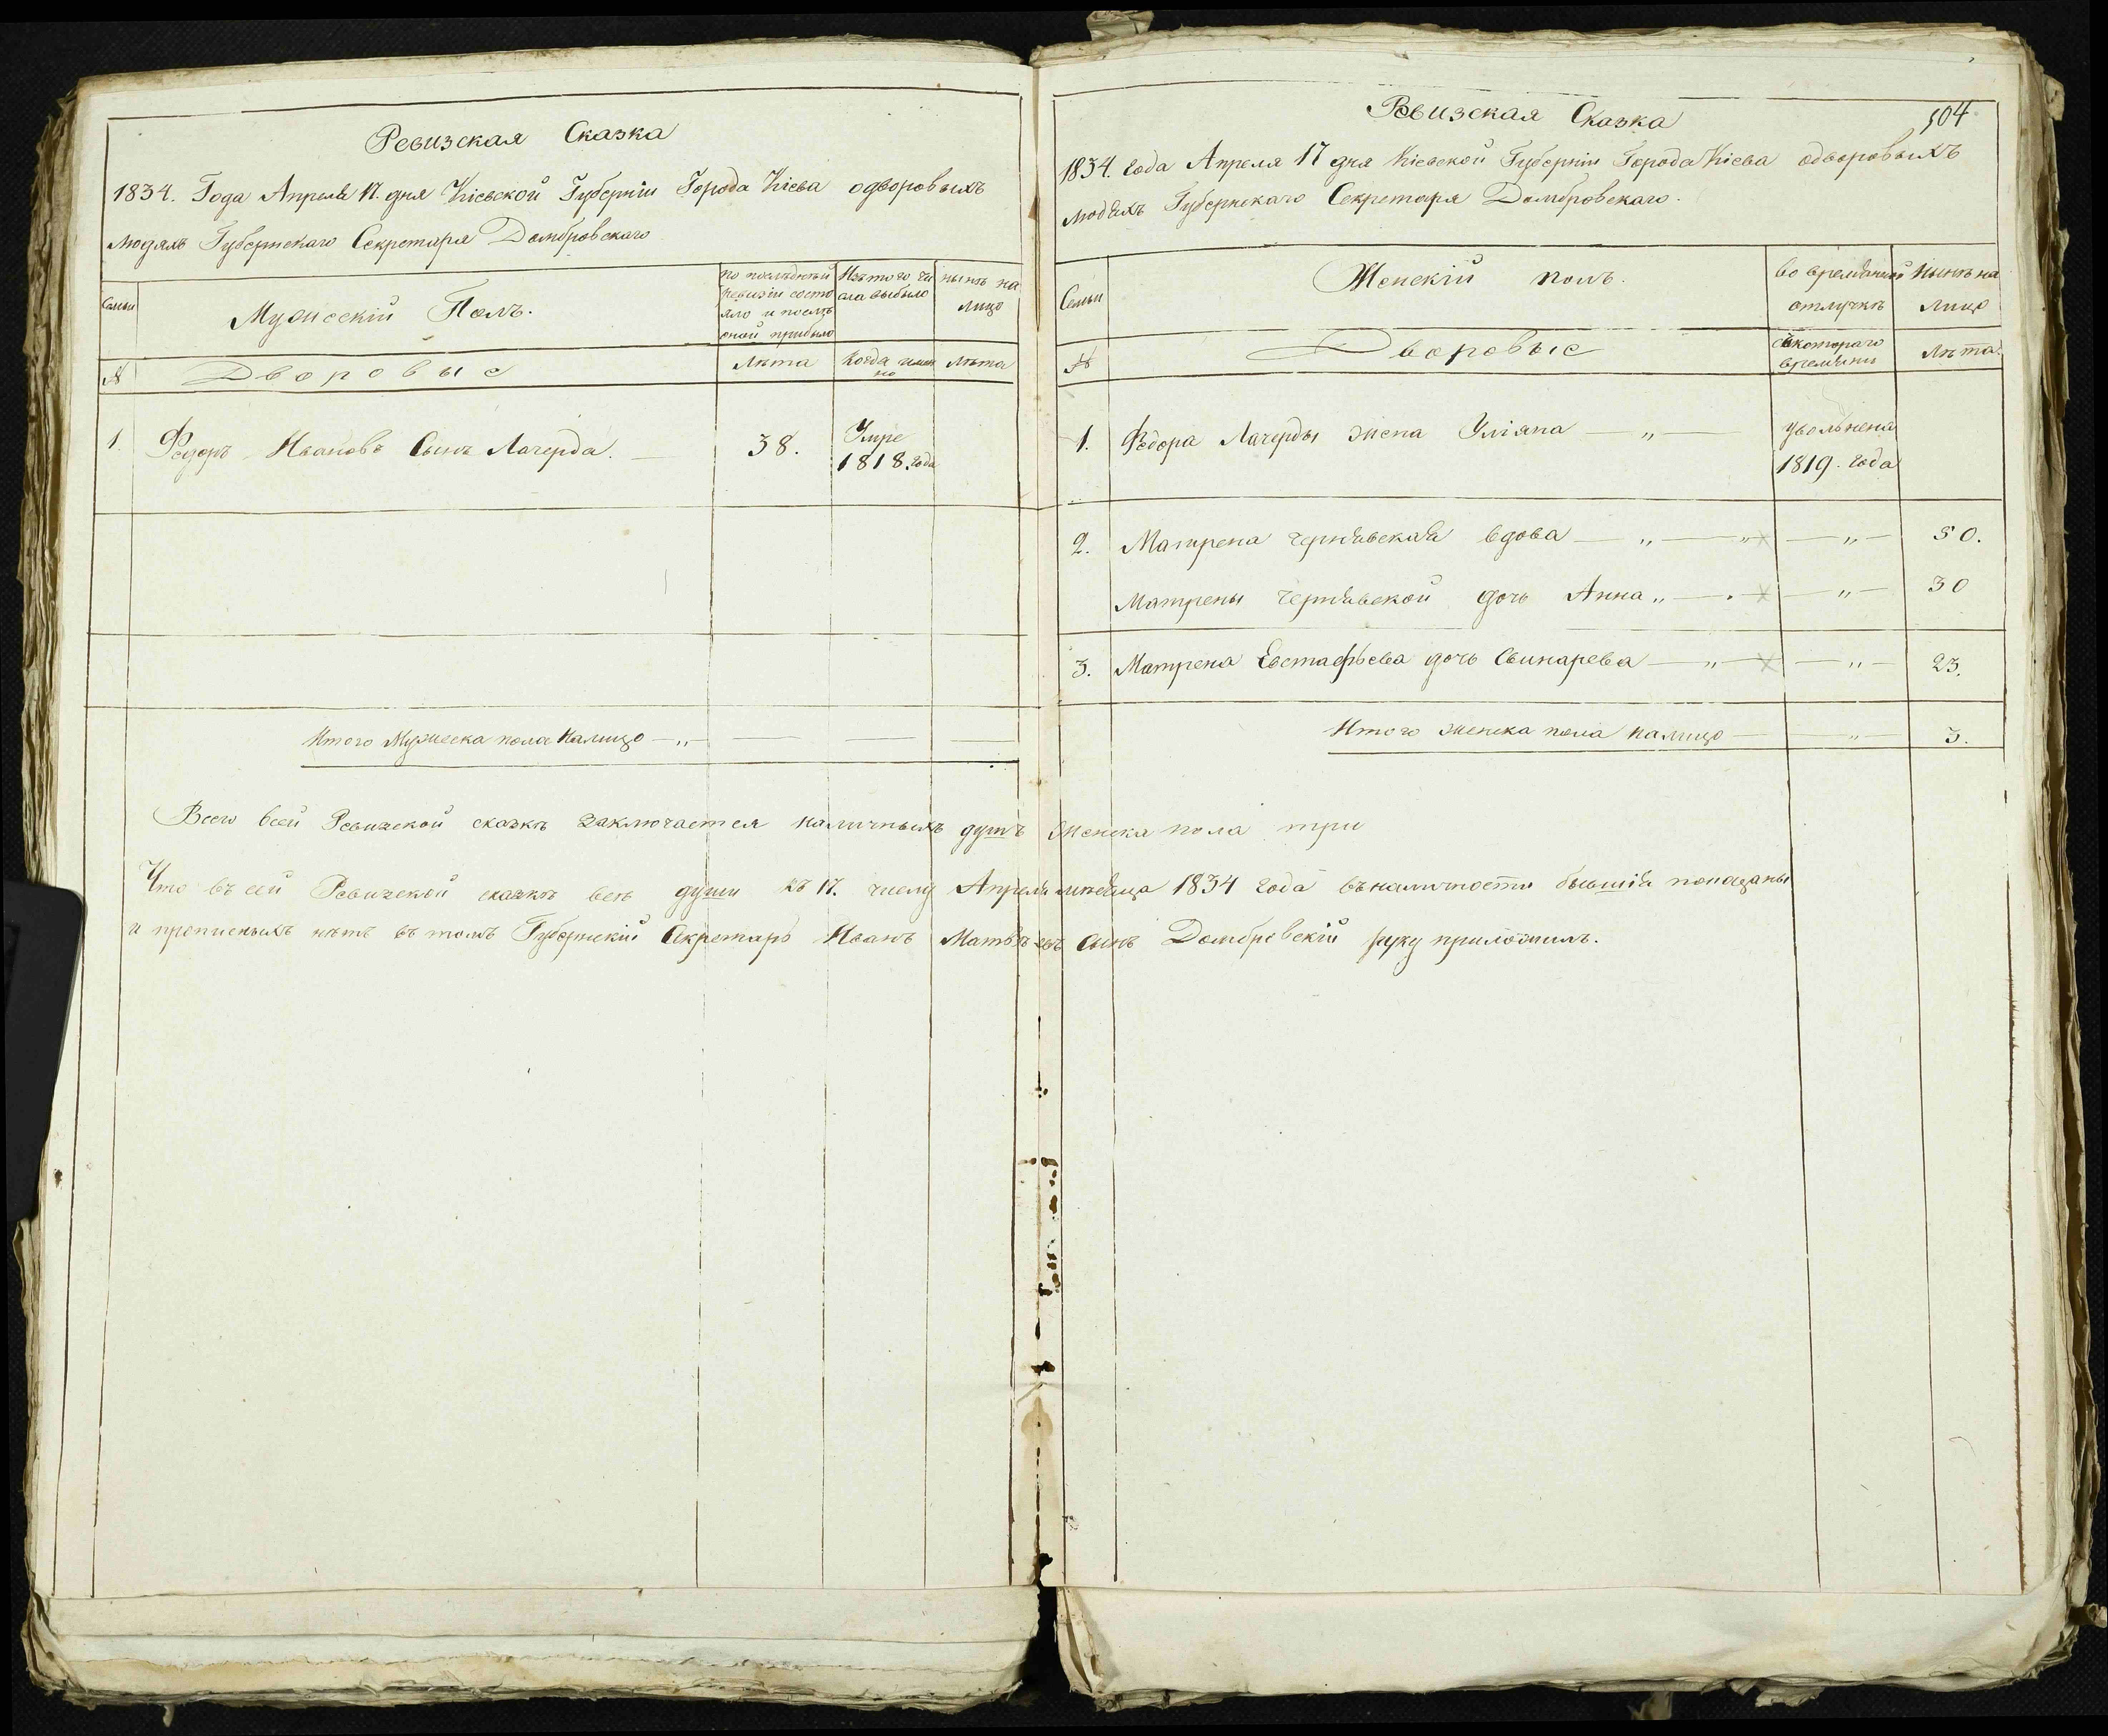 Ревизская Сказка
1834. Года Апреля 17. дня Кіевской Губерніи Города Кіева одворовыхъ
людяхъ Губернскаго Секретаря Домбровскаго
Семьи
Мужескій Полъ.
по последней
ревизіи состо
яло и послѣ
оной прибыло
Изъ того чи
сла выбыло
нынѣ на
лицо
№
Дворовые
Лѣта
Когда имен
но
Лѣта
1. Федоръ Ивановъ Сынъ Лагерда. — 38. Умре
1818. года
Итого Мужеска пола Налицо — „ —
Всего всей Ревизской сказкѣ заключается наличныхъ душъ женска пола три
Что въ сей Ревизской сказкѣ всѣ души къ 17. числу Апреля мѣсяца 1834 года въ наличности бывшія показаны
и прописныхъ нѣтъ въ томъ Губернскій Секретарь Иванъ Матвѣевъ сынъ Домбровскій руку приложилъ.
104
Ревизская Сказка
1834. года Апреля 17 дня Кіевской Губерніи Города Кіева одворовыхъ
людяхъ Губернскаго Секретаря Домбровскаго.
Семьи
Женскій полъ.
во временной
отлучкѣ
Нынѣ на
лицо
№
Дворовые
съ котораго
времяни
Лѣта.
1. Федора Лагерды жена Уліяна — „ — увольнена
1819. года
2. Матрена Чернявская вдова — „ — „ — „ — 50.
Матрены Чернявской дочь Анна „ — „ — 30
3. Матрена Евстафьева дочь Свинарева — „ — „ — 23.
Итого женска пола налицо — „ — 3.